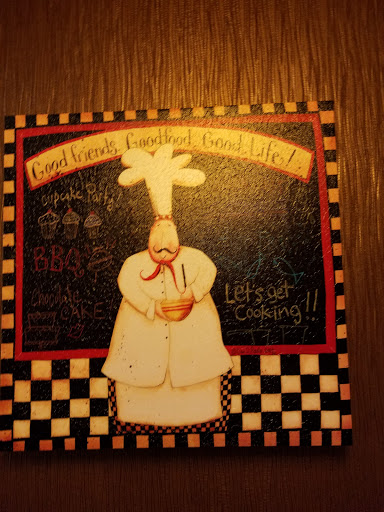 Good friends, Good food, Good Life!
Cupcake Party
BBQ
Chocolate
CAKE
Let's get
Cooking!!